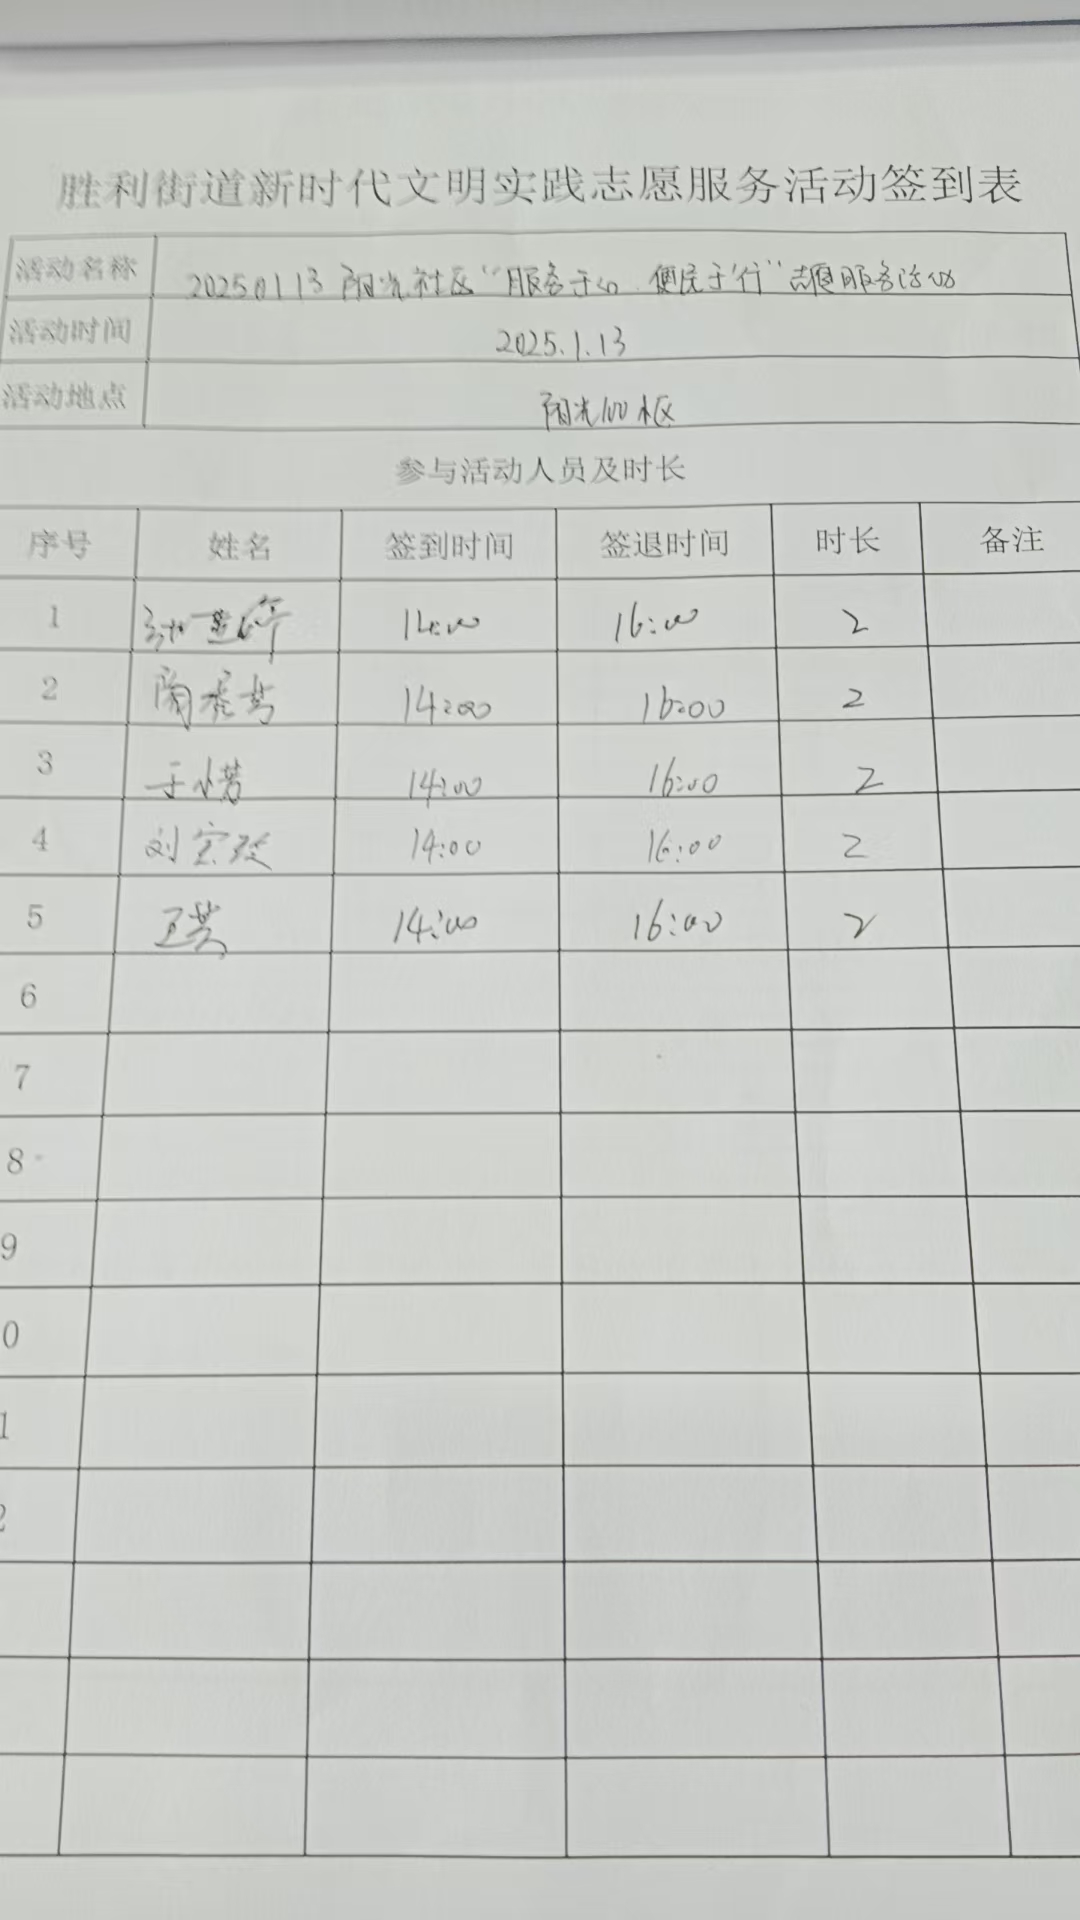 胜利街道新时代文明实践志愿服务活动签到表
活动名称 20250113 阳光社区“服务于心 便民于行”志愿服务活动
活动时间 2025.1.13
活动地点 阳光100 小区
参与活动人员及时长
序号 姓名 签到时间 签退时间 时长 备注
1 14:00 16:00 2
2 14:00 16:00 2
3 于小芳 14:00 16:00 2
4 刘宝玲 14:00 16:00 2
5 14:00 16:00 2
6
7
8
9
0
1
2